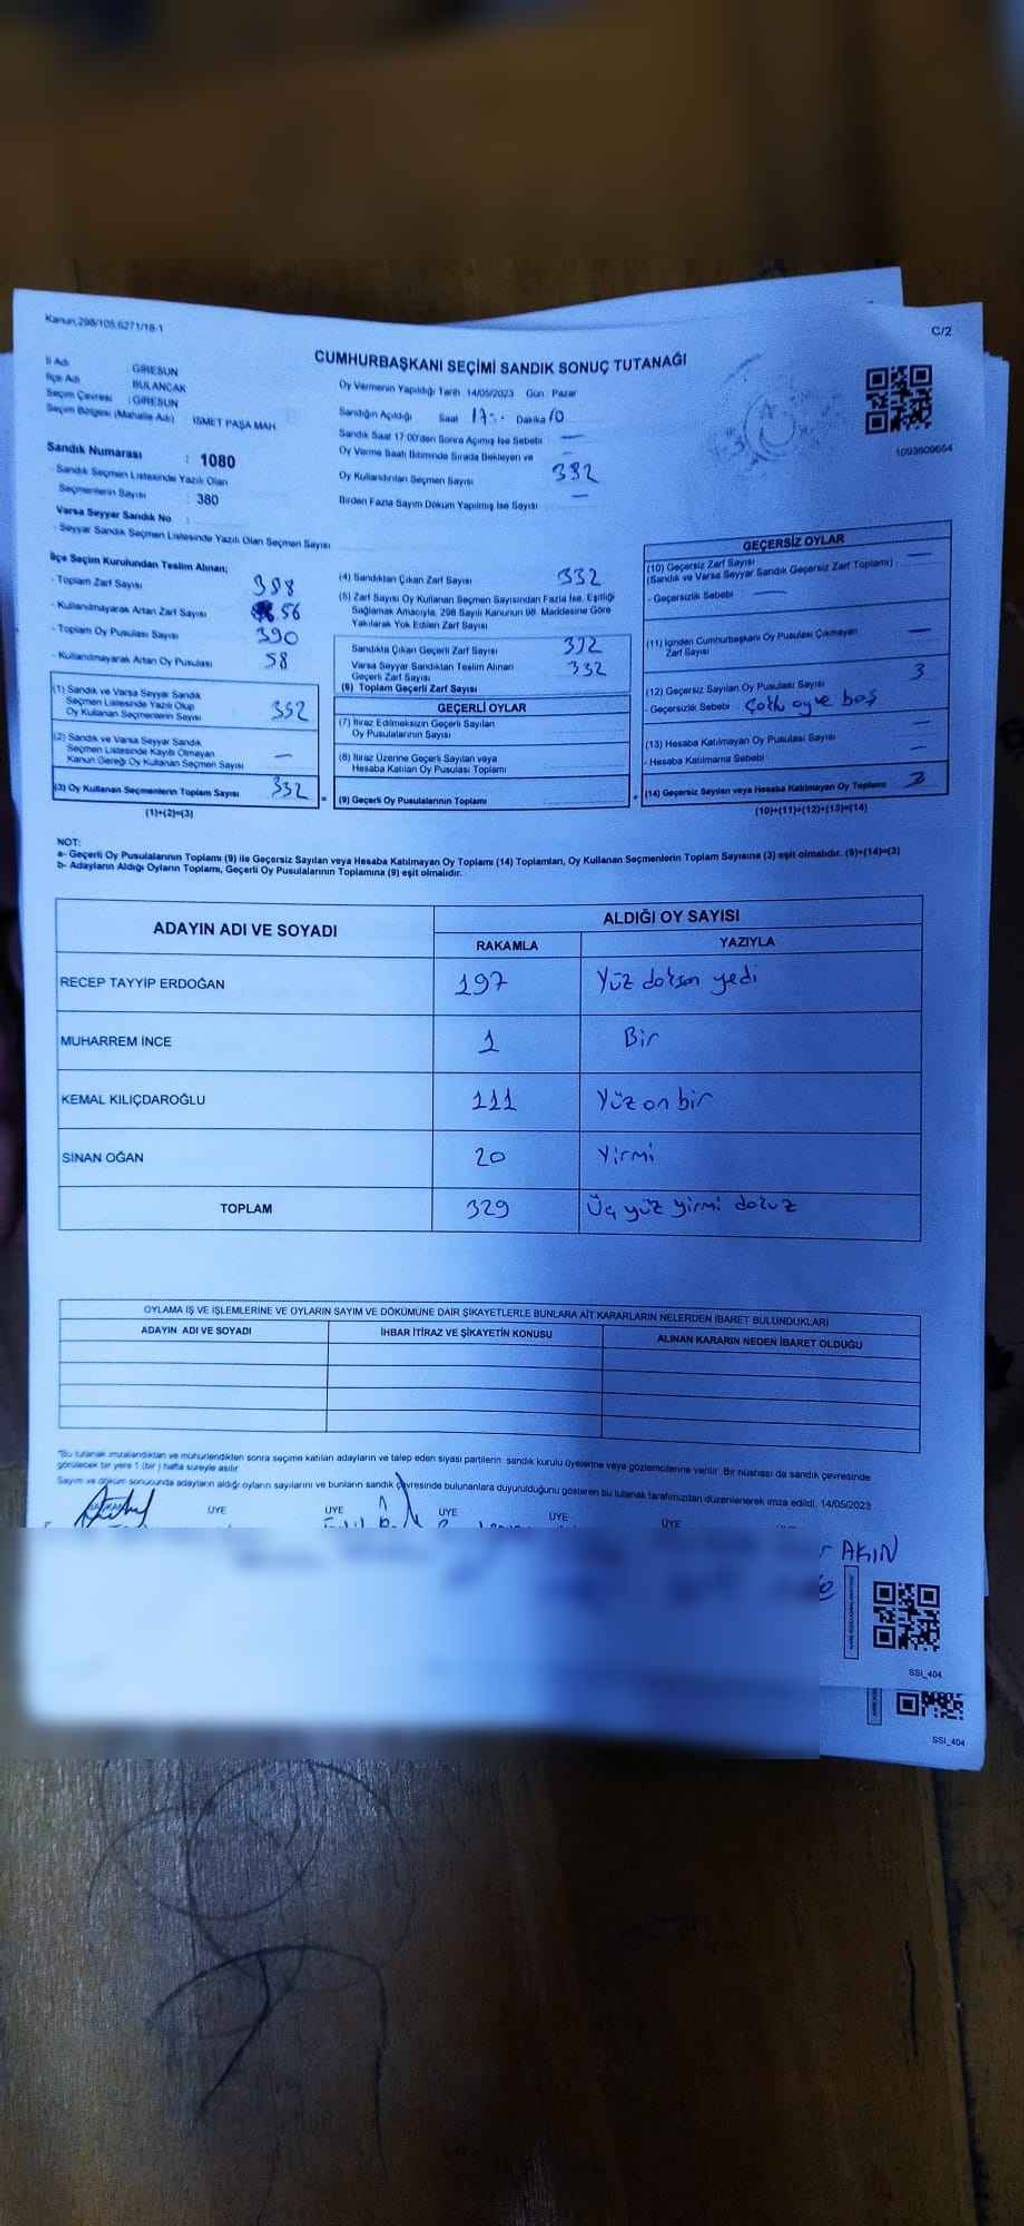 Kanun,298/105,6271/18-1
C/2
CUMHURBAŞKANI SEÇİMİ SANDIK SONUÇ TUTANAĞI
İl Adı : GİRESUN
İlçe Adı BULANCAK
Seçim Çevresi : GİRESUN
Seçim Bölgesi (Mahalle Adı) İSMET PAŞA MAH
Sandık Numarası : 1080
Sandık Seçmen Listesinde Yazılı Olan
Seçmenlerin Sayısı : 380
Varsa Seyyar Sandık No :
Seyyar Sandık Seçmen Listesinde Yazılı Olan Seçmen Sayısı
Oy Vermenin Yapıldığı Tarih 14/05/2023 Gün : Pazar
Sandığın Açıldığı Saat 17 Dakika 10
Sandık Saat 17:00'den Sonra Açılmış İse Sebebi —
Oy Verme Saati Bitiminde Sırada Bekleyen ve
Oy Kullandırılan Seçmen Sayısı 332
Birden Fazla Sayım Döküm Yapılmış İse Sayısı —
1093609664
İlçe Seçim Kurulundan Teslim Alınan;
- Toplam Zarf Sayısı 388
- Kullanılmayarak Artan Zarf Sayısı 56
- Toplam Oy Pusulası Sayısı 390
- Kullanılmayarak Artan Oy Pusulası 58
(1) Sandık ve Varsa Seyyar Sandık
Seçmen Listesinde Yazılı Olup
Oy Kullanan Seçmenlerin Sayısı 332
(2) Sandık ve Varsa Seyyar Sandık
Seçmen Listesinde Kayıtlı Olmayan
Kanun Gereği Oy Kullanan Seçmen Sayısı —
(3) Oy Kullanan Seçmenlerin Toplam Sayısı 332
(1)+(2)=(3)
(4) Sandıktan Çıkan Zarf Sayısı 332
(5) Zarf Sayısı Oy Kullanan Seçmen Sayısından Fazla İse, Eşitliği
Sağlamak Amacıyla, 298 Sayılı Kanunun 98. Maddesine Göre
Yakılarak Yok Edilen Zarf Sayısı
Sandıkta Çıkan Geçerli Zarf Sayısı 332
Varsa Seyyar Sandıktan Teslim Alınan
Geçerli Zarf Sayısı 332
(6) Toplam Geçerli Zarf Sayısı
GEÇERLİ OYLAR
(7) İtiraz Edilmeksizin Geçerli Sayılan
Oy Pusulalarının Sayısı
(8) İtiraz Üzerine Geçerli Sayılan veya
Hesaba Katılan Oy Pusulası Toplamı
(9) Geçerli Oy Pusulalarının Toplamı
GEÇERSİZ OYLAR
(10) Geçersiz Zarf Sayısı —
(Sandık ve Varsa Seyyar Sandık Geçersiz Zarf Toplamı)
- Geçersizlik Sebebi —
(11) İçinden Cumhurbaşkanı Oy Pusulası Çıkmayan —
Zarf Sayısı
(12) Geçersiz Sayılan Oy Pusulası Sayısı 3
- Geçersizlik Sebebi Çoklu oy ve boş
(13) Hesaba Katılmayan Oy Pusulası Sayısı —
- Hesaba Katılmama Sebebi —
(14) Geçersiz Sayılan veya Hesaba Katılmayan Oy Toplamı 3
(10)+(11)+(12)+(13)=(14)
NOT:
a- Geçerli Oy Pusulalarının Toplamı (9) ile Geçersiz Sayılan veya Hesaba Katılmayan Oy Toplamı (14) Toplamları, Oy Kullanan Seçmenlerin Toplam Sayısına (3) eşit olmalıdır. (9)+(14)=(3)
b- Adayların Aldığı Oyların Toplamı, Geçerli Oy Pusulalarının Toplamına (9) eşit olmalıdır.
ADAYIN ADI VE SOYADI
ALDIĞI OY SAYISI
RAKAMLA YAZIYLA
RECEP TAYYİP ERDOĞAN 197 Yüz doksan yedi
MUHARREM İNCE 1 Bir
KEMAL KILIÇDAROĞLU 111 Yüz on bir
SİNAN OĞAN 20 Yirmi
TOPLAM 329 Üç yüz yirmi dokuz
OYLAMA İŞ VE İŞLEMLERİNE VE OYLARIN SAYIM VE DÖKÜMÜNE DAİR ŞİKAYETLERLE BUNLARA AİT KARARLARIN NELERDEN İBARET BULUNDUKLARI
ADAYIN ADI VE SOYADI İHBAR İTİRAZ VE ŞİKAYETİN KONUSU ALINAN KARARIN NEDEN İBARET OLDUĞU
*Bu tutanak imzalandıktan ve mühürlendikten sonra seçime katılan adayların ve talep eden siyasi partilerin sandık kurulu üyelerine veya gözlemcilerine verilir. Bir nüshası da sandık çevresinde
görülecek bir yere 1 (bir) hafta süreyle asılır.
Sayım ve döküm sonucunda adayların aldığı oyların sayılarını ve bunların sandık çevresinde bulunanlara duyurulduğunu gösteren bu tutanak tarafımızdan düzenlenerek imza edildi. 14/05/2023
ÜYE ÜYE ÜYE ÜYE ÜYE
AKIN
SSI_404
SSI_404